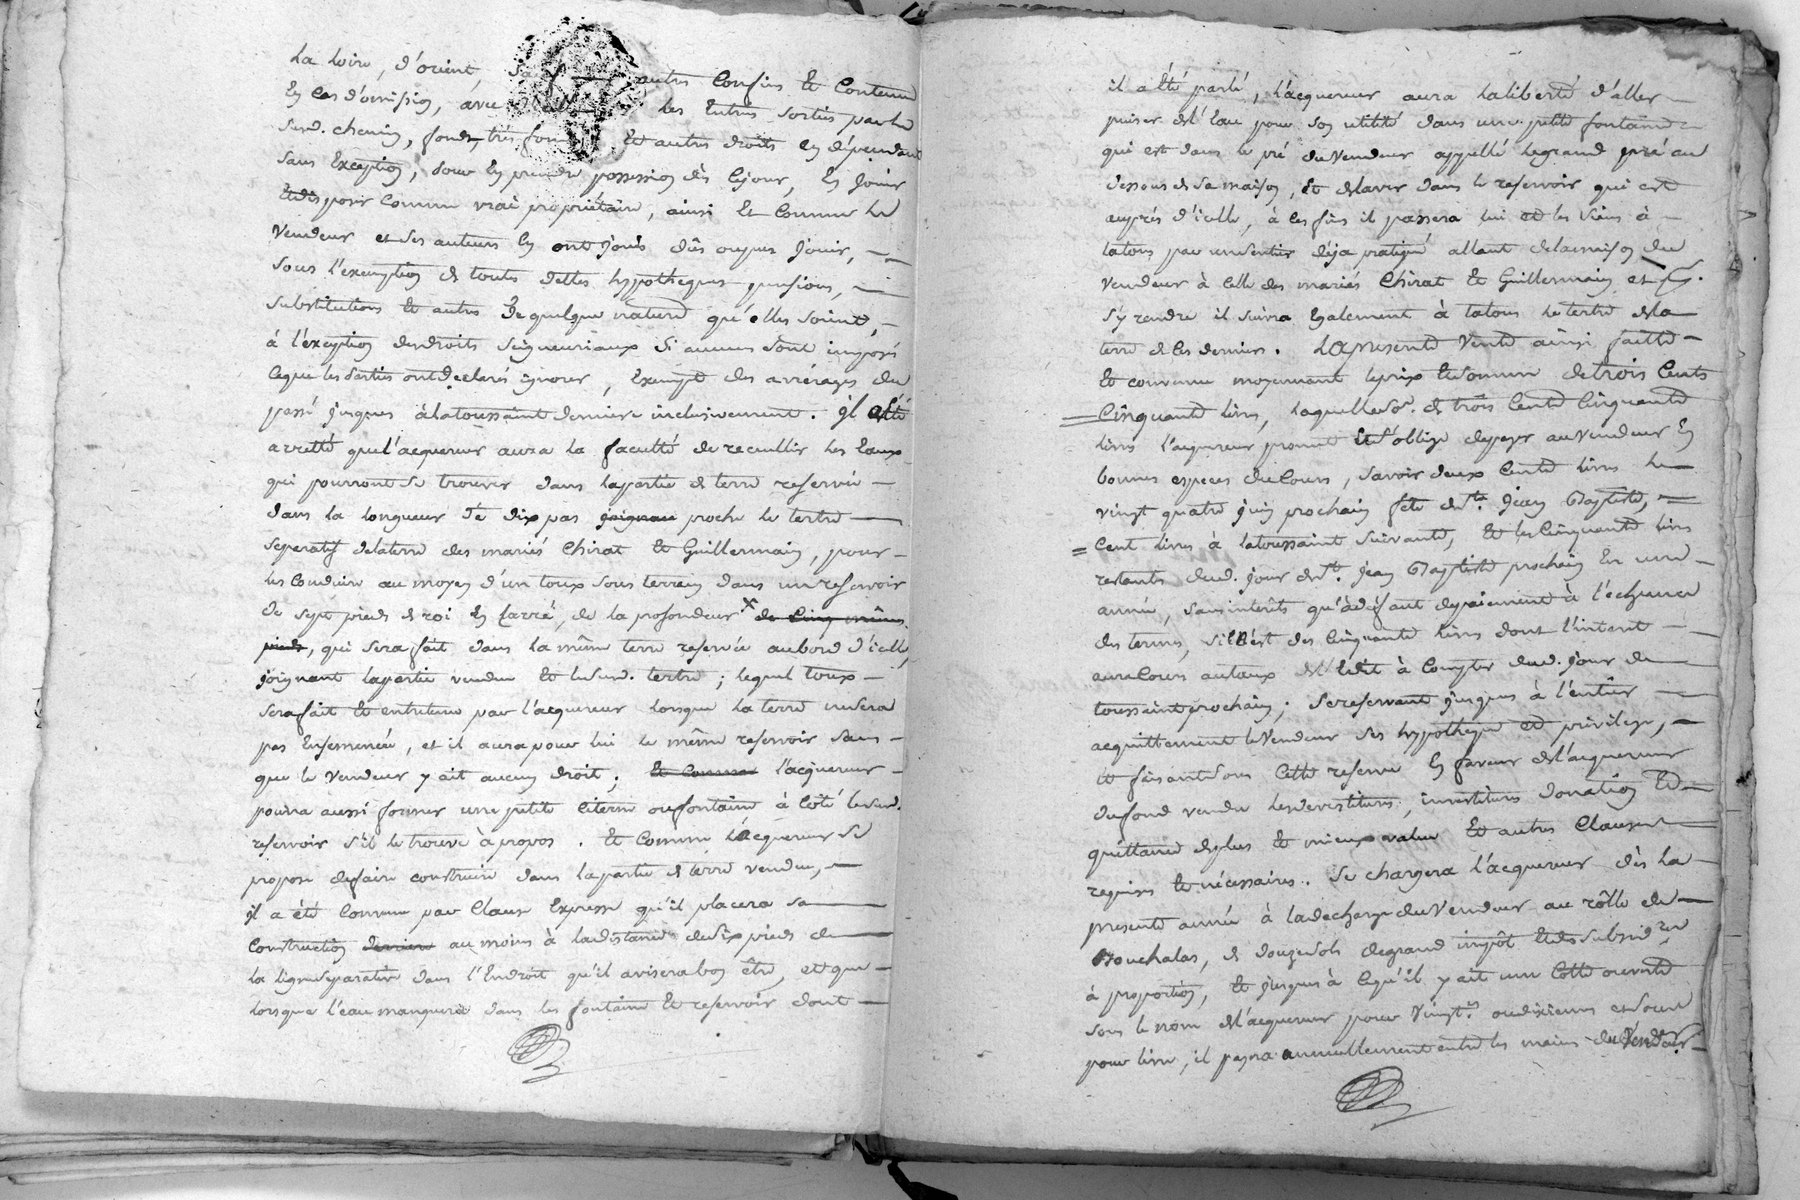 La Loire, d'orient, autres Confins Et Contenu
En Cas d'omission, avec les Entrées Sorties par led
Susd. chemin, fonds, très fonds, Et autres droits en dépendant
Sans Exception, pour En prendre possession dès Cejour, En Jouir
Etdisposer Comme vrai propriétaire, ainsi Et Comme le
Vendeur et Ses auteurs En ont joui dûs ou pus Jouir,
Sous l'exemption de toutes dettes hypotheques pensions,
Substitutions Et autres De quelque nature qu'elles soient,
à l'exeption desdroits Seigneuriaux Si aucuns Sont imposés
Ceque les parties ont Declarés ignorer, Exempte des arrérages du
passé Jusques àlatoussaint derniere inclusivement. Il aEté
arretté que l'acquereur aura la faculté de recuillir les Eaux
qui pourront Se trouver dans lapartie de terre reservée
dans la longueur De dix pas joignau proche le tertre
Separatif delaterre des mariés Chirat Et Guillermain, pour
les Conduire au moyen d'un toux Sous terrein dans un reservoir
De Sept pieds de roi En Carré, de la profondeur x de Cinq mêmes
pieds, qui Sera fait dans la même terre reservée au bord d'icelle,
joignant lapartie vendue Et leSusd. tertre ; lequel toux
Serafait Et entretenu par l'acquereur lorsque la terre nesera
pas Ensemencée, et il aura pour lui le même reservoir Sans
que le Vendeur y ait aucun droit ; Et Comme l'acquereur
pourra aussi former une petite Citerne oufontaine à Côté leSusd.
reservoir S'il le trouve à propos. Et Comme l'Acquereur Se
propose defaire construire dans lapartie de terre vendue,
il a été Convenu par Clause Expresse qu'il placera Sa
Construction derriere au moins à ladistance deSix pieds de
la ligne Séparative dans l'Endroit qu'il aviserabon être, et que
lorsque l'eau manquera dans les fontaine Et reservoir dont
il a Eté parlé, l'acquereur aura laliberté d'aller
puiser de l'Eau pour Son utilité dans une petite fontaine
qui est dans le pré duVendeur appellé legrand pré au
dessous de Sa maison, Et delaver dans le reservoir qui est
auprès d'icelle, à Ces fins il passera lui et les Siens à
talons par unSentier déja pratiqué allant delamaison du
Vendeur à Celle des mariés Chirat Et Guillermain et
S'y rendre il Suivra Egalement à talons le tertre dela
terre de Ces derniers. LApresente Vente ainsi faitte
Et convenue moyennant leprix EtSomme de trois Cents
Cinquante livres, laquelle So.e de trois Cents Cinquante
livres l'acquereur promet EtS'oblige depayer auVendeur En
bonnes especes du Cours, Savoir deux Cents livres le
vingt quatre Juin prochain fête de St. Jean Baptiste,
Cent livres à latoussaint Suivante, Et les Cinquante livres
restantes dud. jour de St. Jean Baptiste prochain En une
année, Sansinterêts qu'àdéfaut depaiement à l'échéance
des termes, Si Ce n'est des Cinquante livres dont l'interêt
aura Cours autaux de l'Edit à Compter dud. jour de
toussaint prochain ; Sereservant jusques à l'entier
acquittement leVendeur Ses hypotheque et privilege,
Et faisant Sous Cette reserve En faveur de l'acquereur
dufond vendu lesdevestitures, investitures donation Et
quittance deplus Et mieux value Et autres Clauses
requises Et nécessaires. Se chargera l'acquereur dès la
presente année à ladecharge duVendeur au rôlle de
Bouchalas, de douzeSols degrand impôt Etdes Subsid.res
à proportion, Et Jusques à Cequ'il y ait une Cotte ouverte
Sous le nom del'acquereur pour Vingt.es oudixiemes et Sous
pour livre, il payera annuellement entre les mains du Vendeur